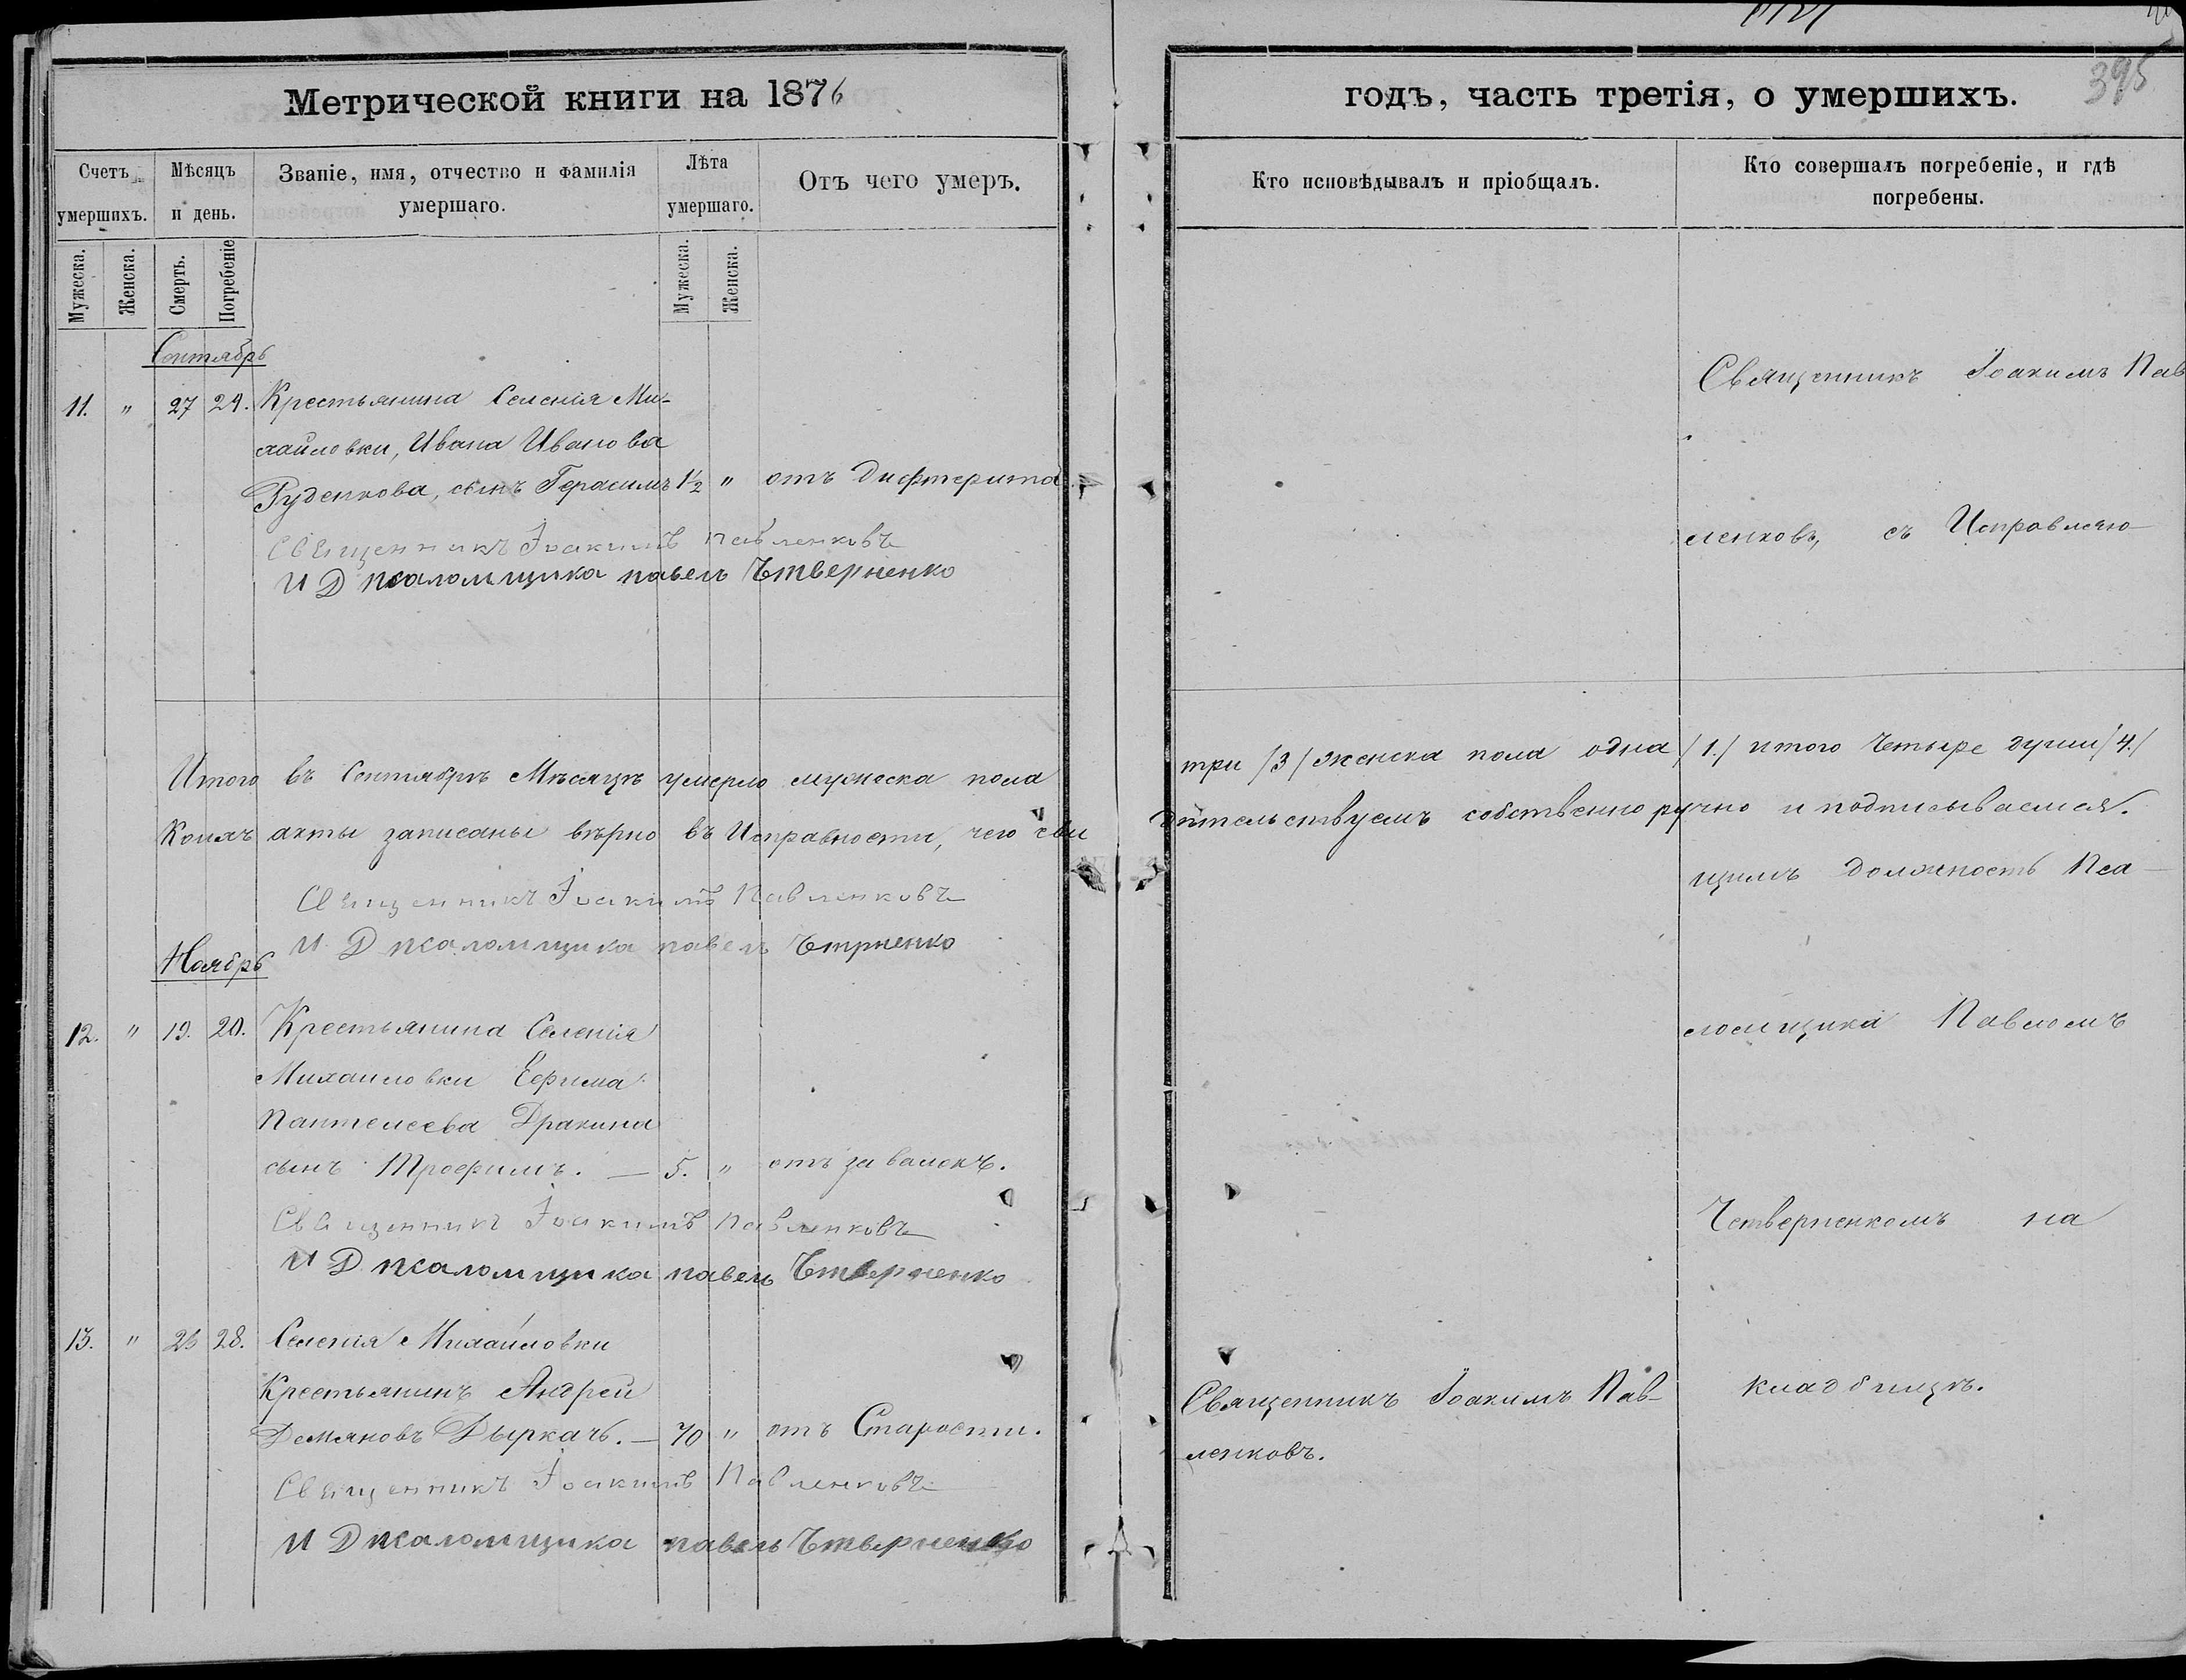 Метрической книги на 1876
Счетъ умершихъ.
Мѣсяцъ и день.
Званіе, имя, отчество и фамилія умершаго.
Лѣта умершаго.
Отъ чего умеръ.
Мужеска.
Женска.
Смерть.
Погребеніе
Мужеска.
Женска.
Сентябрь
11. " 27 29. Крестьянина Селенія Ми-
хайловки, Ивана Иванова
Руденкова, сынъ Герасимъ 1½ " отъ Дифтерита
Священникъ Іоакимъ Павленковъ
И Д псаломщика павелъ Чтверненко
Итого въ Сентябрѣ Мѣсяцѣ умерло мужеска пола
Коихъ акты записаны вѣрно въ Исправности, чего сви
Священникъ Іоакимъ Павленковъ
И Д псаломщика павелъ Чтрненко
Ноябрь
12. " 19. 20. Крестьянина Селенія
Михаиловки Ефима
Пантелеева Дракина
сынъ Трофимъ. — 5. " отъ завалокъ.
Священникъ Іоакимъ Павленковъ
И Д псаломщика павелъ Чтверненко
13. " 26 28. Селенія Михайловки
Крестьянинъ Андрей
Демяновъ Дыркачъ. — 70 " отъ Старости.
Священникъ Іоакимъ Павленковъ
И Д псаломщика павелъ Чтверненко
годъ, часть третія, о умершихъ.
395
Кто исповѣдывалъ и пріобщалъ.
Кто совершалъ погребеніе, и гдѣ погребены.
Священникъ Іоакимъ Пав
ленковъ, съ Исправляю-
три /3/ женска пола одна /1./ итого Четыре души /4./
дѣтельствуемъ собственноручно и подписываемся.
щимъ должность Пса-
ломщика Павломъ
Четверненкомъ на
Священникъ Іоакимъ Пав-
ленковъ.
кладбищѣ.